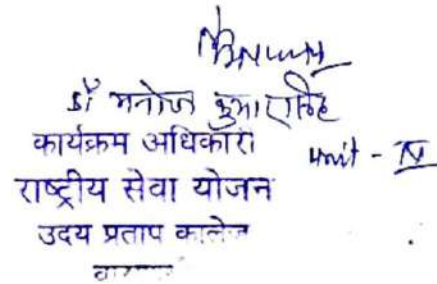 डॉ मनोज कुमार सिंह
कार्यक्रम अधिकारी unit - IV
राष्ट्रीय सेवा योजन
उदय प्रताप कालेज